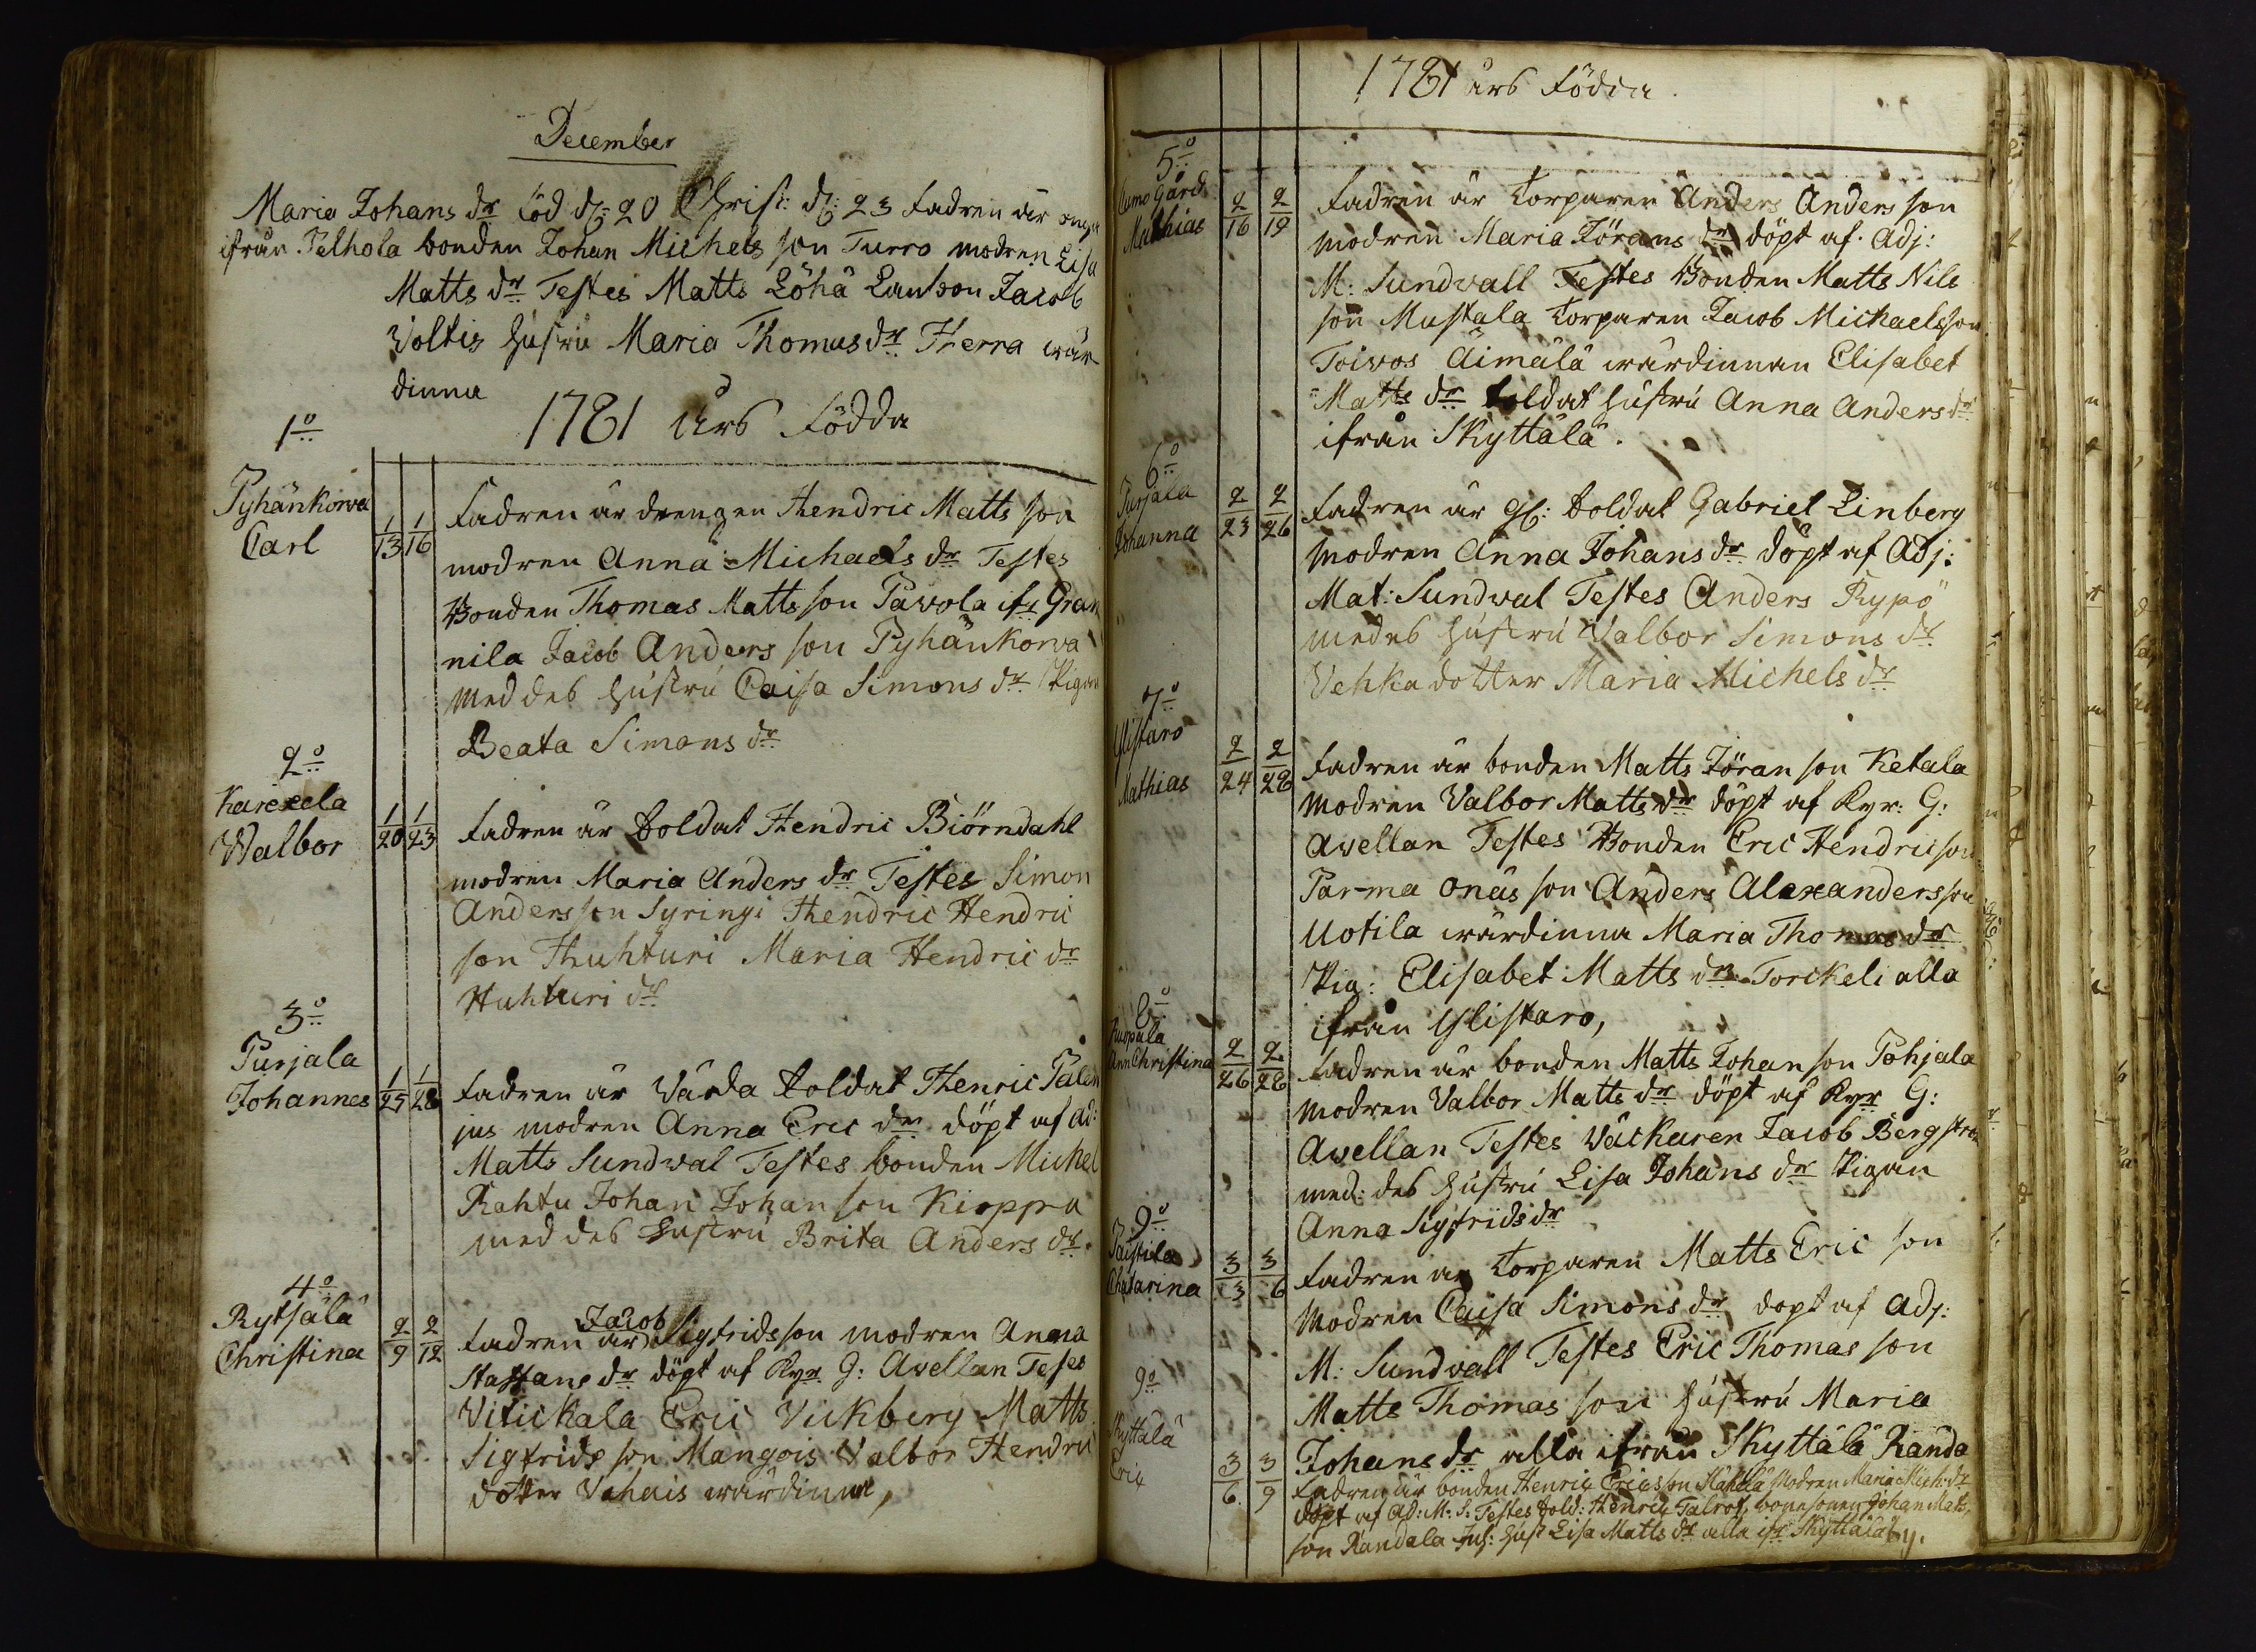 December
Maria Johans dr föd d: 20 Christ: d: 23 Fadren är
ifrån Pelhola bonden Johan Michels son Turro modren Lisa
Matts dr Testes Matts Löhä Jacob
Voltis hustru Maria Thomas dr Herra wär
dinna
1781 års Födda
1o
Pyhänkorva
Carl
1/13 1/16
Fadren är drengen Hendric Matts son
modren Anna Michaels dr Testes
Bonden Thomas Matts son Pavola ifr Gran
nila Jacob Anders son Pyhänkorva
med des hustru Caisa Simons dr Pigan
Beata Simons dr
2o
Karexela
Walbor
1/20 1/23
Fadren är Soldat Hendric Biörndahl
modren Maria Anders dr Testes Simon
Andersson Syringi Hendric Hendric
son Huhturi Maria Hendric dr
Huhturi dr
3o
Purjala
Johannes
1/25 1/28
Fadren är Värda Soldat Henric Palen
jus modren Anna Eric dr döpt af Ad:
Matts Sundwal Testes bonden Michel
Rahtu Johan Johan son Kioppa
med des hustru Brita Anders dr.
4o
Rytsälä
Christina
2/9 2/12
Jacob
Fadren är Sigfridsson modren Anna
Staffans dr döpt af Kyr G: Avellan Teses
Vitickala Eric Vickberg Matts
Sigfrids son Mangois Valbor Hendric
dotter Vahais wärdinna,
1781 års Födda
5o
Numo gård
Mathias
2/16 2/19
Fadren är Torparen Anders Anders son
modren Maria Jörans dr döpt af Adj:
M: Sundvall Testes Bonden Matts Nils
son Mustala Torparen Jacob Michaelsson
Toivos Äimälä wärdinnan Elisabet
Matts dr Soldat hustru Anna Anders dr
ifrån Skyttälä.
6o
Purjala
Johanna
2/23 2/26
Fadren är gl: Soldat Gabriel Linberg
modren Anna Johans dr döpt af Adj:
Mat: Sundwal Testes Anders Rypö
medes hustru Walbor Simons dr
Vehka dotter Maria Michels dr
7o
Ylistaro
Mathias
2/24 2/28
Fadren är bonden Matts Jöran son Ketala
modren Valbor Matts dr döpt af Kyr: G:
Avellan Testes Bonden Eric Hendricson
Parma Onäs son Anders Alexandersson
Uotila wärdinna Maria Thomas dr
Pig: Elisabet Matts dr Torckeli alla
ifrån Ylistaro,
8o
Huopala
Ann Christina
2/26 2/28
Fadren är bonden Matts Johan son Pohjala
modren Valbor Matts dr döpt af Kyr G:
Avellan Testes Väckaren Jacob Bergström
med: des hustru Lisa Johans dr Pigan
Anna Sigfrids dr
9o
Paistila
Chatarina
3/3 3/6
Fadren är Torparen Matts Eric son
modren Caisa Simons dr döpt af Adj:
M: Sundvall Testes Eric Thomas son
Matts Thomas son hustru Maria
Johans dr alla ifrån Skyttälä Randa
9o
Skyttälä
Eric
3/6 3/9
Fadren är bonden Henric Ericsson Modren Maria Mich: dr
döpt af Ad: M: S: Testes Sold: Henric Talrot, bonesonen Johan Mats
son Randala Inh: hust Lisa Matts dr alla ifr Skyttälä by.